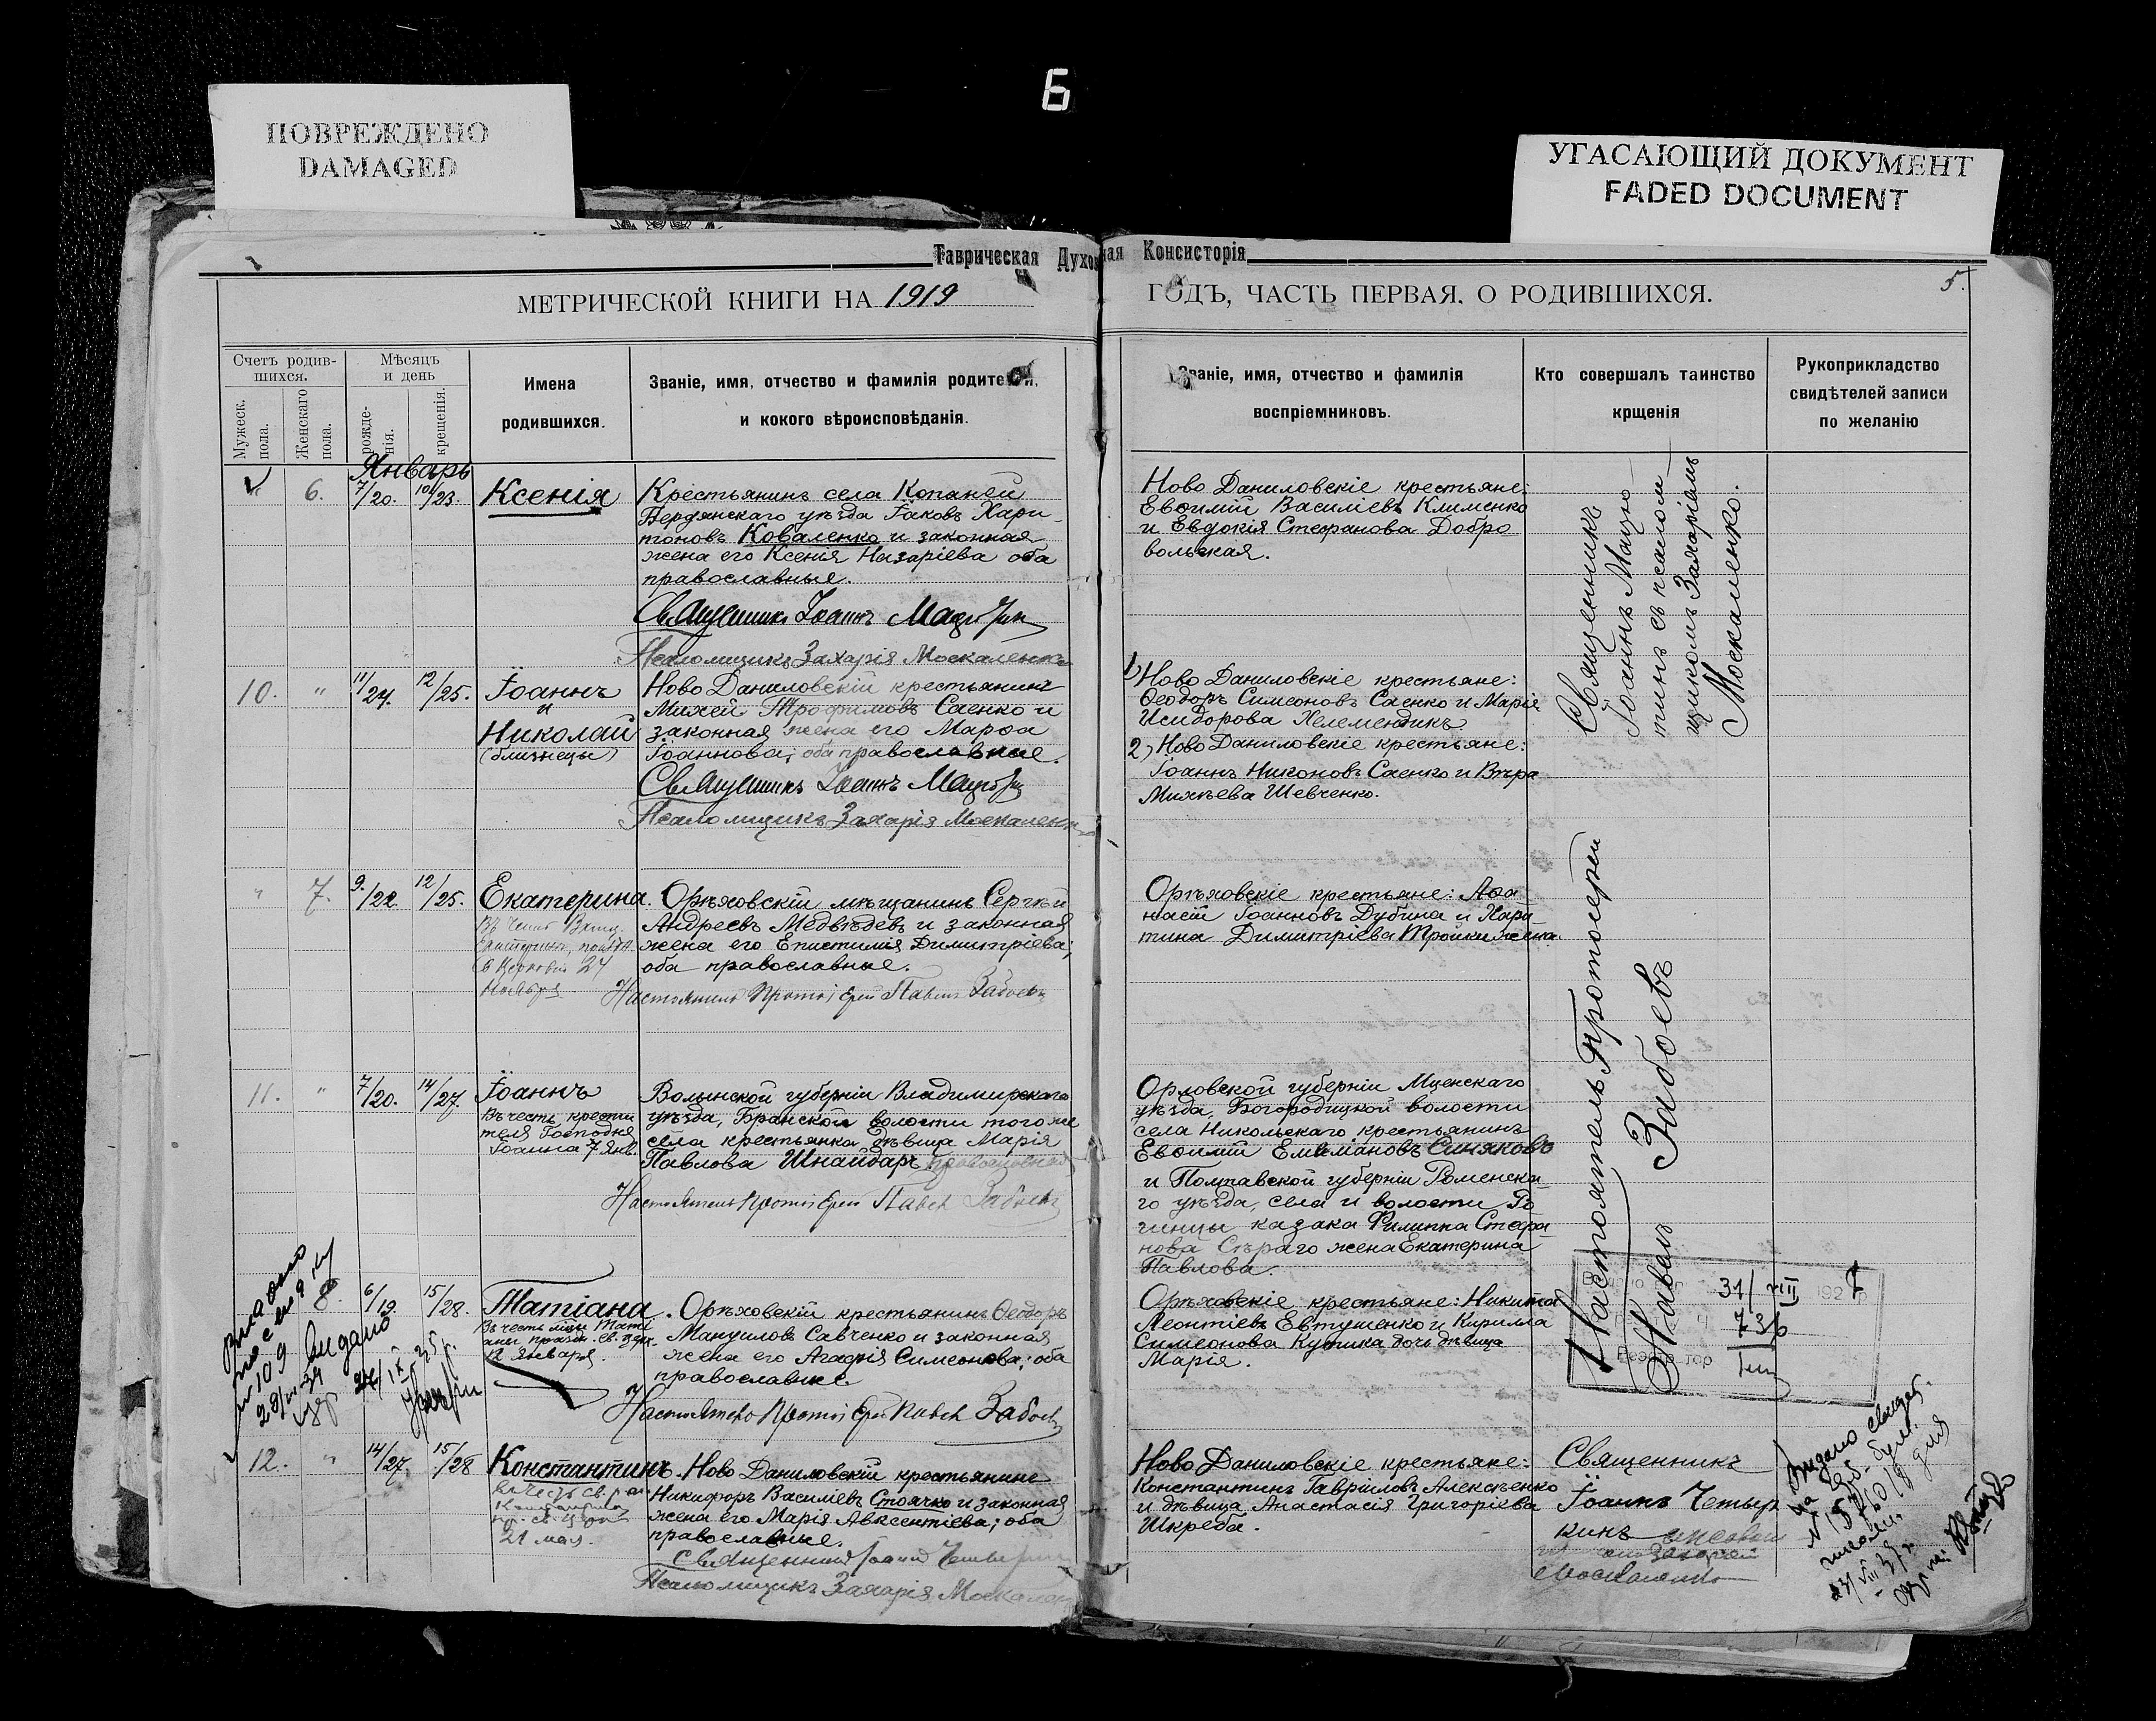 Б
ПОВРЕЖДЕНО
DAMAGED
УГАСАЮЩИЙ ДОКУМЕНТ
FADED DOCUMENT
Таврическая Духовная Консисторія
МЕТРИЧЕСКОЙ КНИГИ НА 1919
ГОДЪ, ЧАСТЬ ПЕРВАЯ. О РОДИВШИХСЯ.
5.
Счетъ родив-
шихся.
Мужеск.
пола.
Женскаго
пола.
Мѣсяцъ
и день
рожде-
нія.
крещенія.
Имена
родившихся.
Званіе, имя, отчество и фамилія родителей,
и кокого вѣроисповѣданія.
Званіе, имя, отчество и фамилія
воспріемниковъ.
Кто совершалъ таинство
крщенія
Рукоприкладство
свидѣтелей записи
по желанію
Январь
6.
7/20.
10/23.
Ксенія
Крестьянинъ села Копаней
Бердянскаго уѣзда Іаковъ Хари-
тоновъ Коваленко и законная
жена его Ксенія Назаріева оба
православные.
Священникъ Іоаннъ
Псаломщикъ Захарія Москаленко
Ново Даниловскіе крестьяне:
Евѳимій Василіевъ Клименко
и Евдокія Стефанова Добро
вольская.
Священникъ
Іоаннъ Мацю
тинъ съ псалом
щикомъ Захаріемъ
Москаленко.
10.
"
11/24.
12/25.
Іоаннъ
и
Николай
(близнецы)
Ново Даниловскій крестьянинъ
Михей Трофимовъ Саенко и
законная жена его Марѳа
Іоаннова; оба православные.
Священникъ Іоаннъ
Псаломщикъ Захарія Москаленко
1) Ново Даниловскіе крестьяне:
Ѳеодоръ Симеоновъ Саенко и Марія
Исидорова Хелемендикъ.
2) Ново Даниловскіе крестьяне:
Іоаннъ Никоновъ Саенко и Вѣра
Михѣева Шевченко.
"
7.
9/22
12/25.
Екатерина.
Екатерины,
24
Ноября
Орѣховскій мѣщанинъ Сергѣй
Андреевъ Медвѣдевъ и законная
жена его Епистимія Димитріева;
оба православные.
Настоятель Протоіерей Павелъ Забоевъ
Орѣховскіе крестьяне: Аѳа
насій Іоанновъ Дубина и Хари
тина Димитріева Тройки жена.
Настоятель Протоіерей
Павелъ Забоевъ
11.
"
7/20.
14/27.
Іоаннъ
Въ честь крести
теля Господня
Іоанна 7 Янв.
Волынской губерніи Владимирскаго
уѣзда, Бранской волости того же
села крестьянка дѣвица Марія
Павлова Шнайдаръ православная
Настоятель Протоіерей Павелъ Забоевъ
Орловской губерніи Мценскаго
уѣзда, Богородицкой волости
села Никольскаго крестьянинъ
Евѳимій Емемановъ Синяковъ
и Полтавской губерніи Роменска-
го уѣзда, села и волости
казака Филиппа Стефа
нова Сѣраго жена Екатерина
Павлова.
8.
6/19.
15/28.
Татіана.
12 января.
Орѣховскій крестьянинъ Ѳеодоръ
Мануиловъ Савченко и законная
жена его Агафія Симеонова; оба
православные.
Настоятель Протоіерей Павелъ Забоевъ
Орѣховскіе крестьяне: Никита
Леонтіевъ Евтушенко и Кирилла
Симеонова Кулика дочь дѣвица
Марія.
31/VIII 1927
736
12.
"
14/27.
15/28
Константинъ.
21 мая.
Ново Даниловскій крестьянинъ
Никифоръ Василіевъ Стоячко и законная
жена его Марія Авксентіева; оба
православные.
Священникъ Іоаннъ
Псаломщикъ Захарія Москаленко
Ново Даниловскіе крестьяне:
Константинъ Гавріиловъ Алексѣенко
и дѣвица Анастасія Григоріева
Шкреба.
Священникъ
Іоаннъ Четыр
кинъ
Захаріей
Москаленко